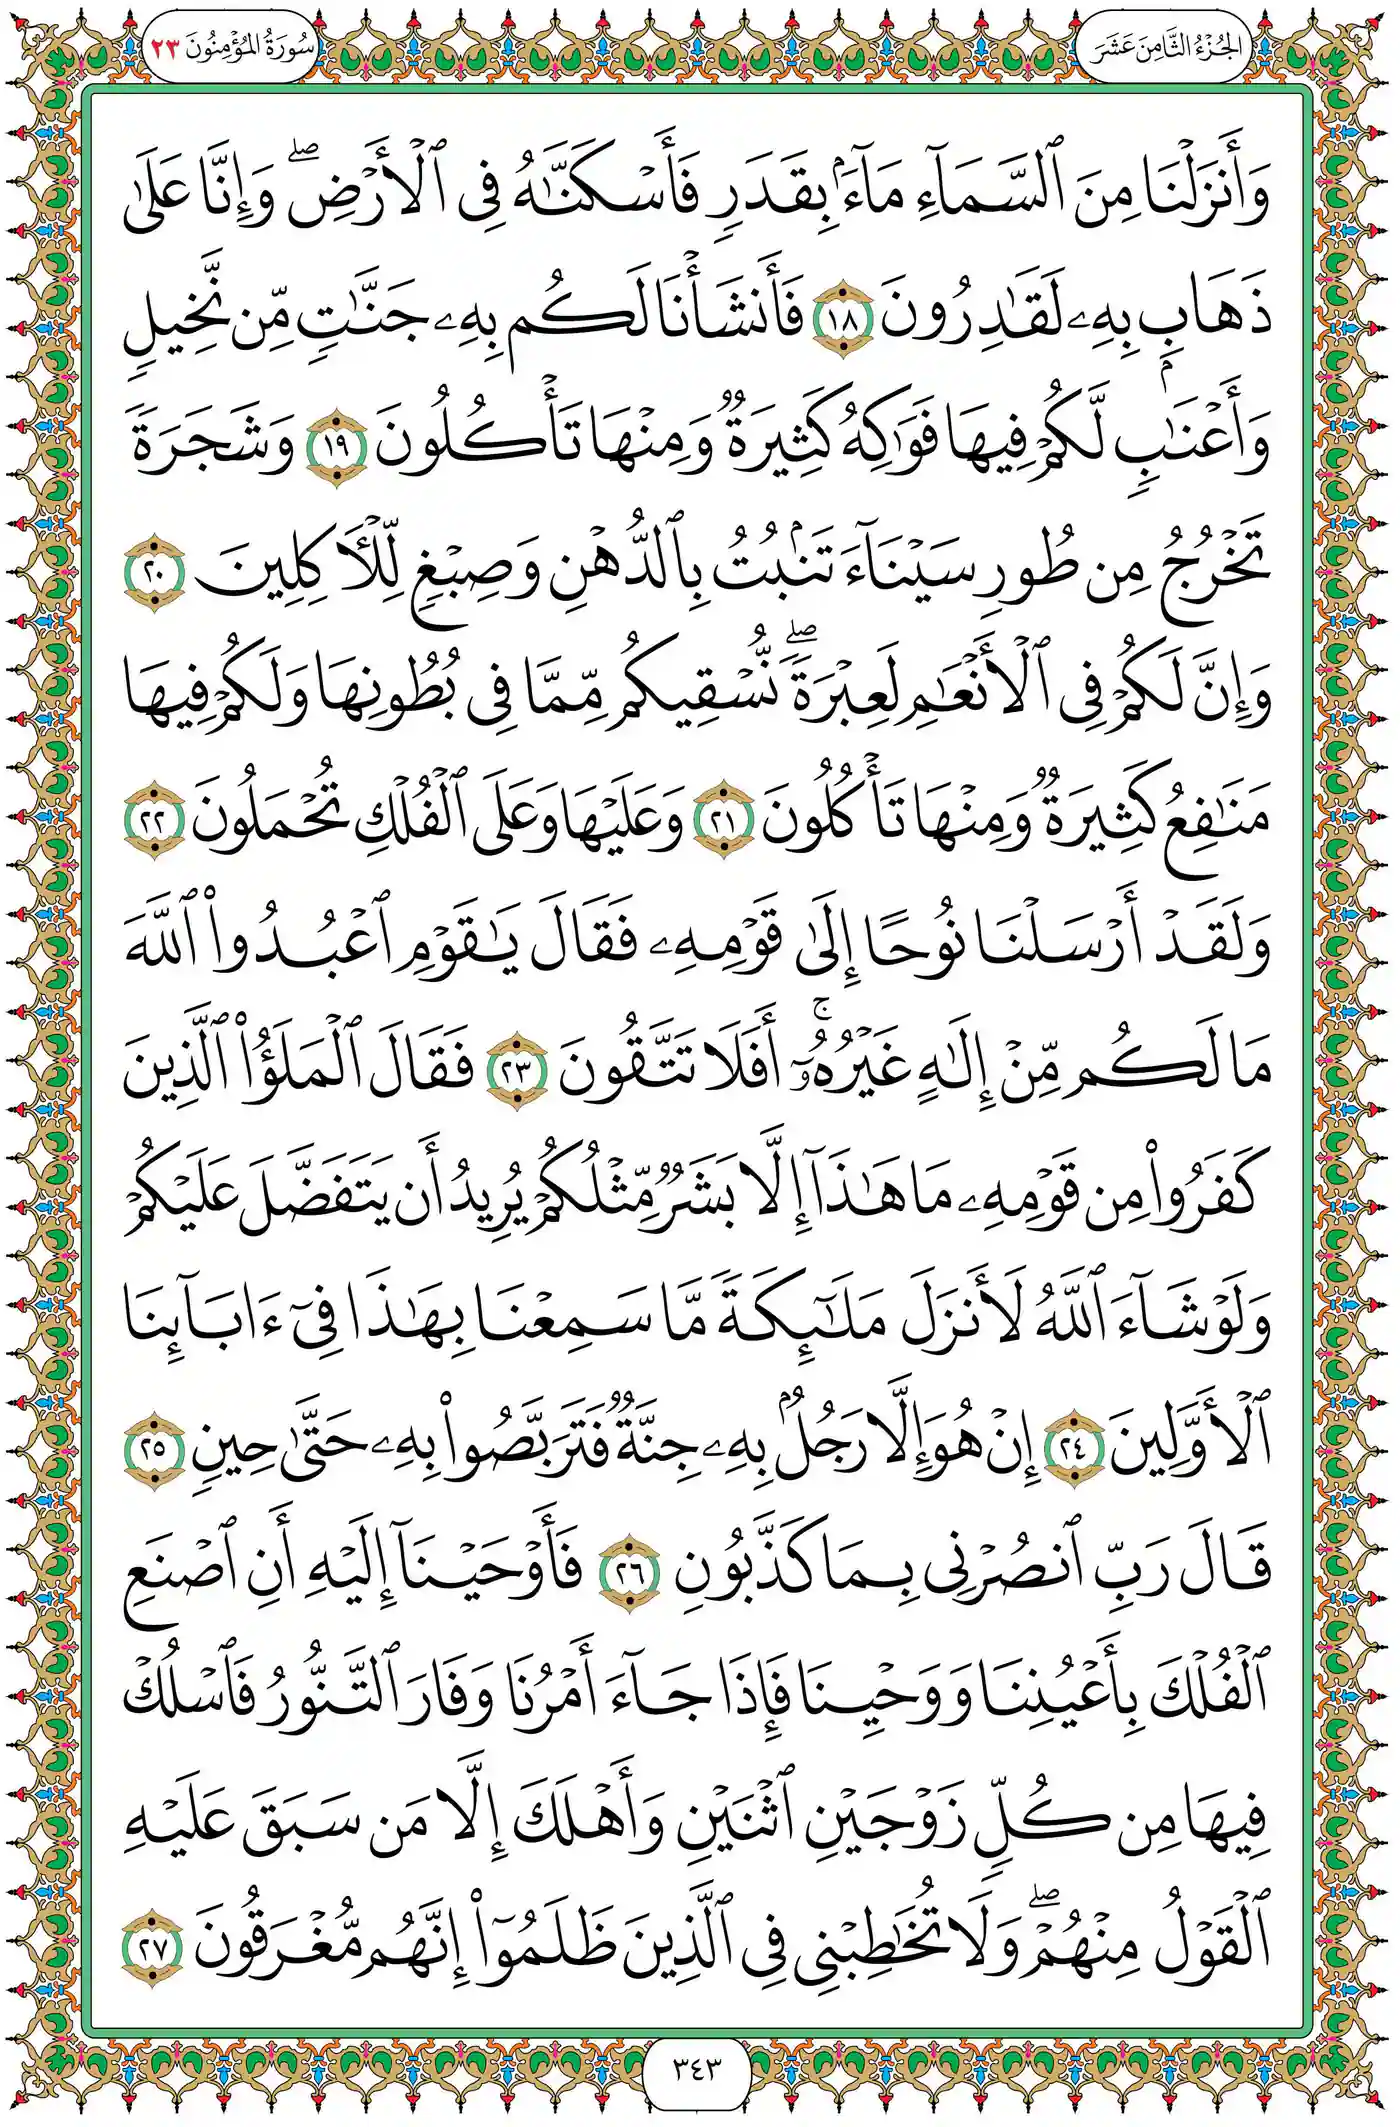 الجُزْءُ الثَّامِنَ عَشَرَ
سُورَةُ المُؤْمِنُونَ ٢٣
وَأَنزَلْنَا مِنَ ٱلسَّمَآءِ مَآءًۢ بِقَدَرٍ فَأَسْكَنَّٰهُ فِى ٱلْأَرْضِۖ وَإِنَّا عَلَىٰ
ذَهَابٍۭ بِهِۦ لَقَٰدِرُونَ ١٨ فَأَنشَأْنَا لَكُم بِهِۦ جَنَّٰتٍ مِّن نَّخِيلٍ
وَأَعْنَٰبٍ لَّكُمْ فِيهَا فَوَٰكِهُ كَثِيرَةٌ وَمِنْهَا تَأْكُلُونَ ١٩ وَشَجَرَةً
تَخْرُجُ مِن طُورِ سَيْنَآءَ تَنۢبُتُ بِٱلدُّهْنِ وَصِبْغٍ لِّلْأَكِلِينَ ٢٠
وَإِنَّ لَكُمْ فِى ٱلْأَنْعَٰمِ لَعِبْرَةًۖ نُّسْقِيكُم مِّمَّا فِى بُطُونِهَا وَلَكُمْ فِيهَا
مَنَٰفِعُ كَثِيرَةٌ وَمِنْهَا تَأْكُلُونَ ٢١ وَعَلَيْهَا وَعَلَى ٱلْفُلْكِ تُحْمَلُونَ ٢٢
وَلَقَدْ أَرْسَلْنَا نُوحًا إِلَىٰ قَوْمِهِۦ فَقَالَ يَٰقَوْمِ ٱعْبُدُوا۟ ٱللَّهَ
مَا لَكُم مِّنْ إِلَٰهٍ غَيْرُهُۥٓۚ أَفَلَا تَتَّقُونَ ٢٣ فَقَالَ ٱلْمَلَؤُا۟ ٱلَّذِينَ
كَفَرُوا۟ مِن قَوْمِهِۦ مَا هَٰذَآ إِلَّا بَشَرٌ مِّثْلُكُمْ يُرِيدُ أَن يَتَفَضَّلَ عَلَيْكُمْ
وَلَوْ شَآءَ ٱللَّهُ لَأَنزَلَ مَلَٰٓئِكَةً مَّا سَمِعْنَا بِهَٰذَا فِىٓ ءَابَآئِنَا
ٱلْأَوَّلِينَ ٢٤ إِنْ هُوَ إِلَّا رَجُلٌۢ بِهِۦ جِنَّةٌ فَتَرَبَّصُوا۟ بِهِۦ حَتَّىٰ حِينٍ ٢٥
قَالَ رَبِّ ٱنصُرْنِى بِمَا كَذَّبُونِ ٢٦ فَأَوْحَيْنَآ إِلَيْهِ أَنِ ٱصْنَعِ
ٱلْفُلْكَ بِأَعْيُنِنَا وَوَحْيِنَا فَإِذَا جَآءَ أَمْرُنَا وَفَارَ ٱلتَّنُّورُ فَٱسْلُكْ
فِيهَا مِن كُلٍّ زَوْجَيْنِ ٱثْنَيْنِ وَأَهْلَكَ إِلَّا مَن سَبَقَ عَلَيْهِ
ٱلْقَوْلُ مِنْهُمْۖ وَلَا تُخَٰطِبْنِى فِى ٱلَّذِينَ ظَلَمُوٓا۟ إِنَّهُم مُّغْرَقُونَ ٢٧
٣٤٣